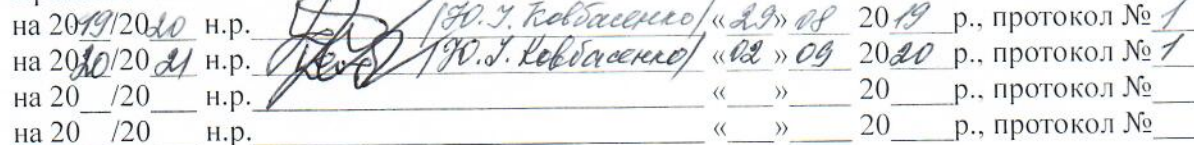 на 2019/2020 н.р. /Ю.І. Ковбасенко/ «29» 08 2019 р., протокол № 1
на 2020/2021 н.р. /Ю.І. Ковбасенко/ «02» 09 2020 р., протокол № 1
на 20__/20___ н.р. ___ «___»_____ 20____р., протокол №___
на 20__/20___ н.р. ___ «___»_____ 20____р., протокол №___